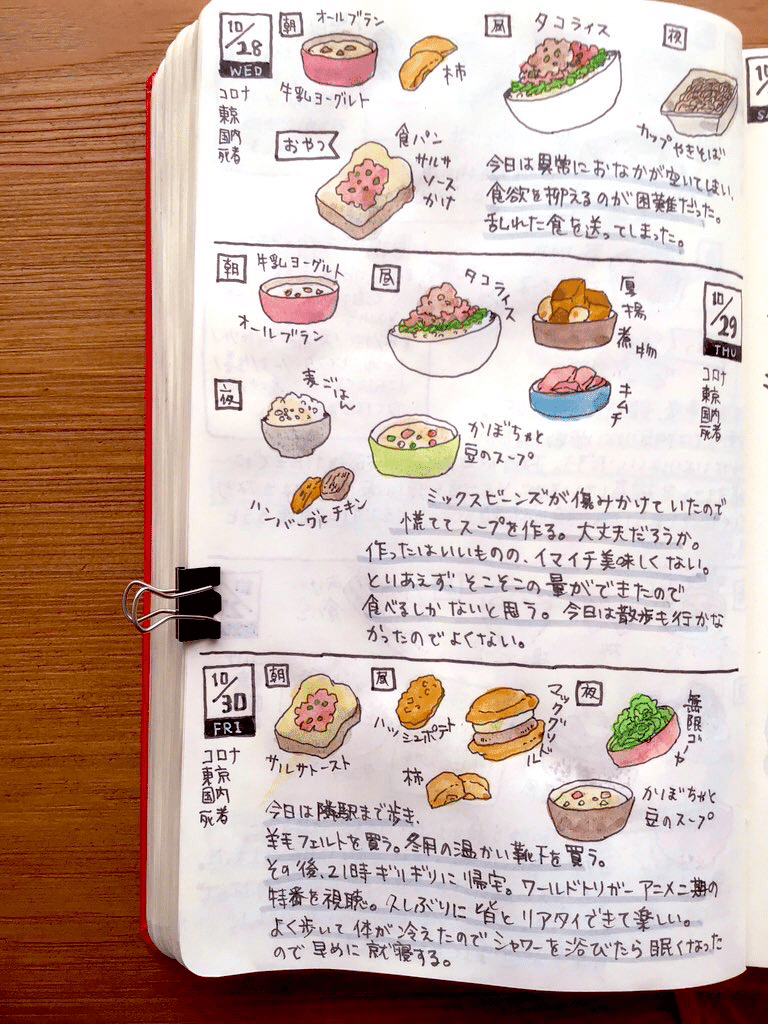 10/28
WED
コロナ
東京
国内
死者
朝
オールブラン
牛乳ヨーグルト
柿
昼
タコライス
夜
カップやきそば
おやつ
食パン
サルサ
ソース
かけ
今日は異常におなかが空いてしまい、
食欲を抑えるのが困難だった。
乱れた食を送ってしまった。
10/29
THU
コロナ
東京
国内
死者
朝
牛乳ヨーグルト
オールブラン
昼
タコライス
厚揚煮物
キムチ
夜
麦ごはん
かぼちゃと
豆のスープ
ハンバーグとチキン
ミックスビーンズが傷みかけていたので
慌ててスープを作る。大丈夫だろうか。
作ったはいいものの、イマイチ美味しくない。
とりあえず、そこそこの量ができたので
食べるしかないと思う。今日は散歩も行かな
かったのでよくない。
10/30
FRI
コロナ
東京
国内
死者
朝
サルサトースト
昼
ハッシュポテト
マックグリドル
柿
夜
無限ゴーヤ
かぼちゃと
豆のスープ
今日は隣駅まで歩き、
羊毛フェルトを買う。冬用の温かい靴下を買う。
その後、21時ギリギリに帰宅。ワールドトリガーアニメ二期の
特番を視聴。久しぶりに皆とリアタイできて楽しい。
よく歩いて体が冷えたのでシャワーを浴びたら眠くなった
ので早めに就寝する。